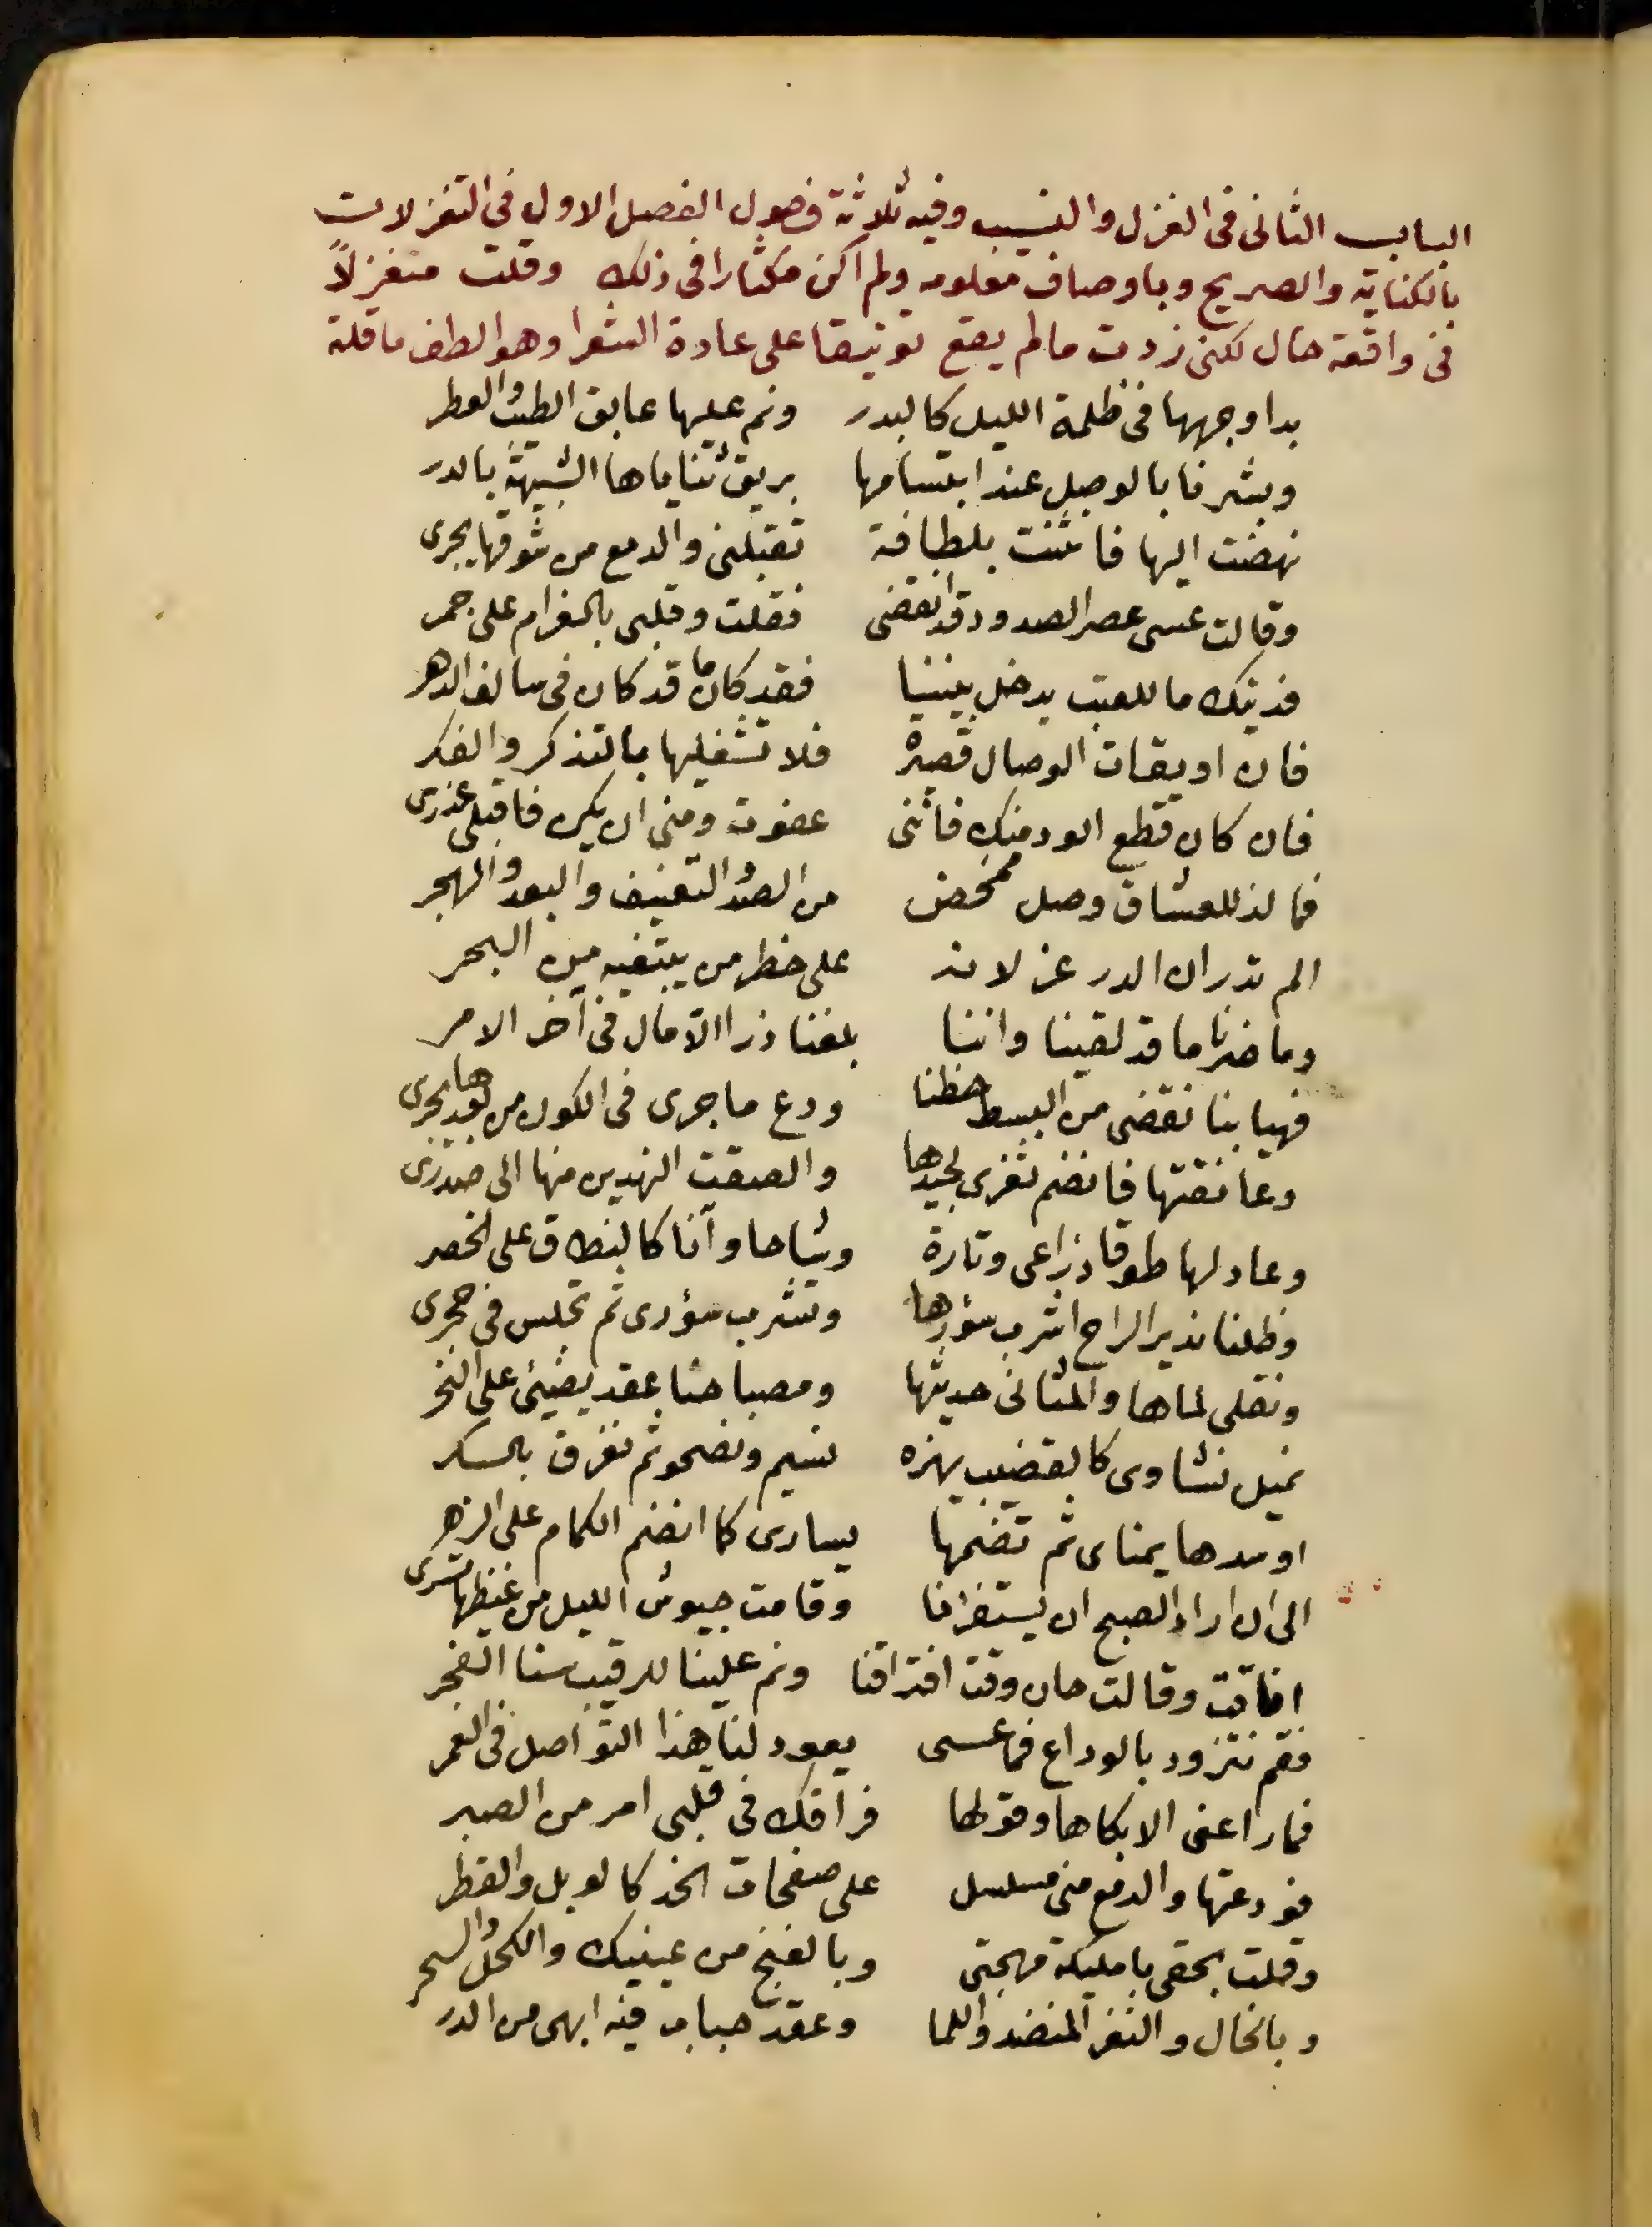 الباب الثانى فى الغزل والنسيب وفيه ثلاثة فصول الفصل الاول فى التغزلات
بالكناية والصريح وباوصاف معلومه ولم اكن مكثارا فى ذلك وقلت متغزلاً
فى واقعة حال لكنى زدت مالم يقع توثيقا على عادة الشعرا وهو الطف ما قلته
بدا وجهها فى ظلمة الليل كالبدر ونم عليها عابق الطيب والعطر
وبشرنا بالوصل عند ابتسامها بريق ثناياها الشبيهة بالدر
نهضت اليها فانثنت بلطافة تقبلنى والدمع من شوقها يجرى
وقالت عسى عصر الصدود قد انقضى فقلت وقلبى بالغرام على جمر
فديتك ما للعتب يدخل بيننا فقد كان ما قد كان فى سالف الدهر
فان اويقات الوصال قصيرة فلا تشغليها بالتذكر والفكر
فان كان قطع الود منك فاننى عفوت ومنى ان يكن فاقبلى عذرى
فما لذ للعشاق وصل ممحض من الصد والتعنيف والبعد والهجر
الم تدر ان الدر عز لانه على خطر من يبتغيه من البحر
وما ضرنا ما قد لقينا واننا بلغنا ذرا الآمال فى آخر الامر
فهيا بنا نقضى من البسط حظنا ودع ما جرى فى الكون من بعدها يجرى
وعانقتها فانضم ثغرى لجيدها والصقت النهدين منها الى صدرى
وعاد لها طوقا ذراعى وتارة وشاحا وآنا كالنطاق على الخصر
وظلنا ندير الراح اشرب سؤرها وتشرب سؤرى ثم تجلس فى حجرى
ونقلى لماها والمثانى حديثها ومصباحنا عقد يضيئ على النحر
نميل نشاوى كالقضيب يهزه نسيم ونصحو ثم نغرق بالسكر
اوسدها يمناى ثم تضمها يسارى كما انضم الكمام على الزهر
الى ان اراد الصبح ان يستفزنا وقامت جيوش الليل من غيظها تسرى
افاقت وقالت حان وقت افتراقنا ونم علينا للرقيب سنا الفجر
فقم نتزود بالوداع فما عسى يعود لنا هذا التواصل فى العمر
فما راعنى الا بكاها وقولها فراقك فى قلبى امر من الصبر
فودعتها والدمع منى مسلسل على صفحات الخد كالوبل والقطر
وقلت بحقى يا مليكة مهجتى وبالغنج من عينيك والكحل والسحر
وبالخال والثغر المنضد واللما وعقد حباب فيه ابهى من الدر